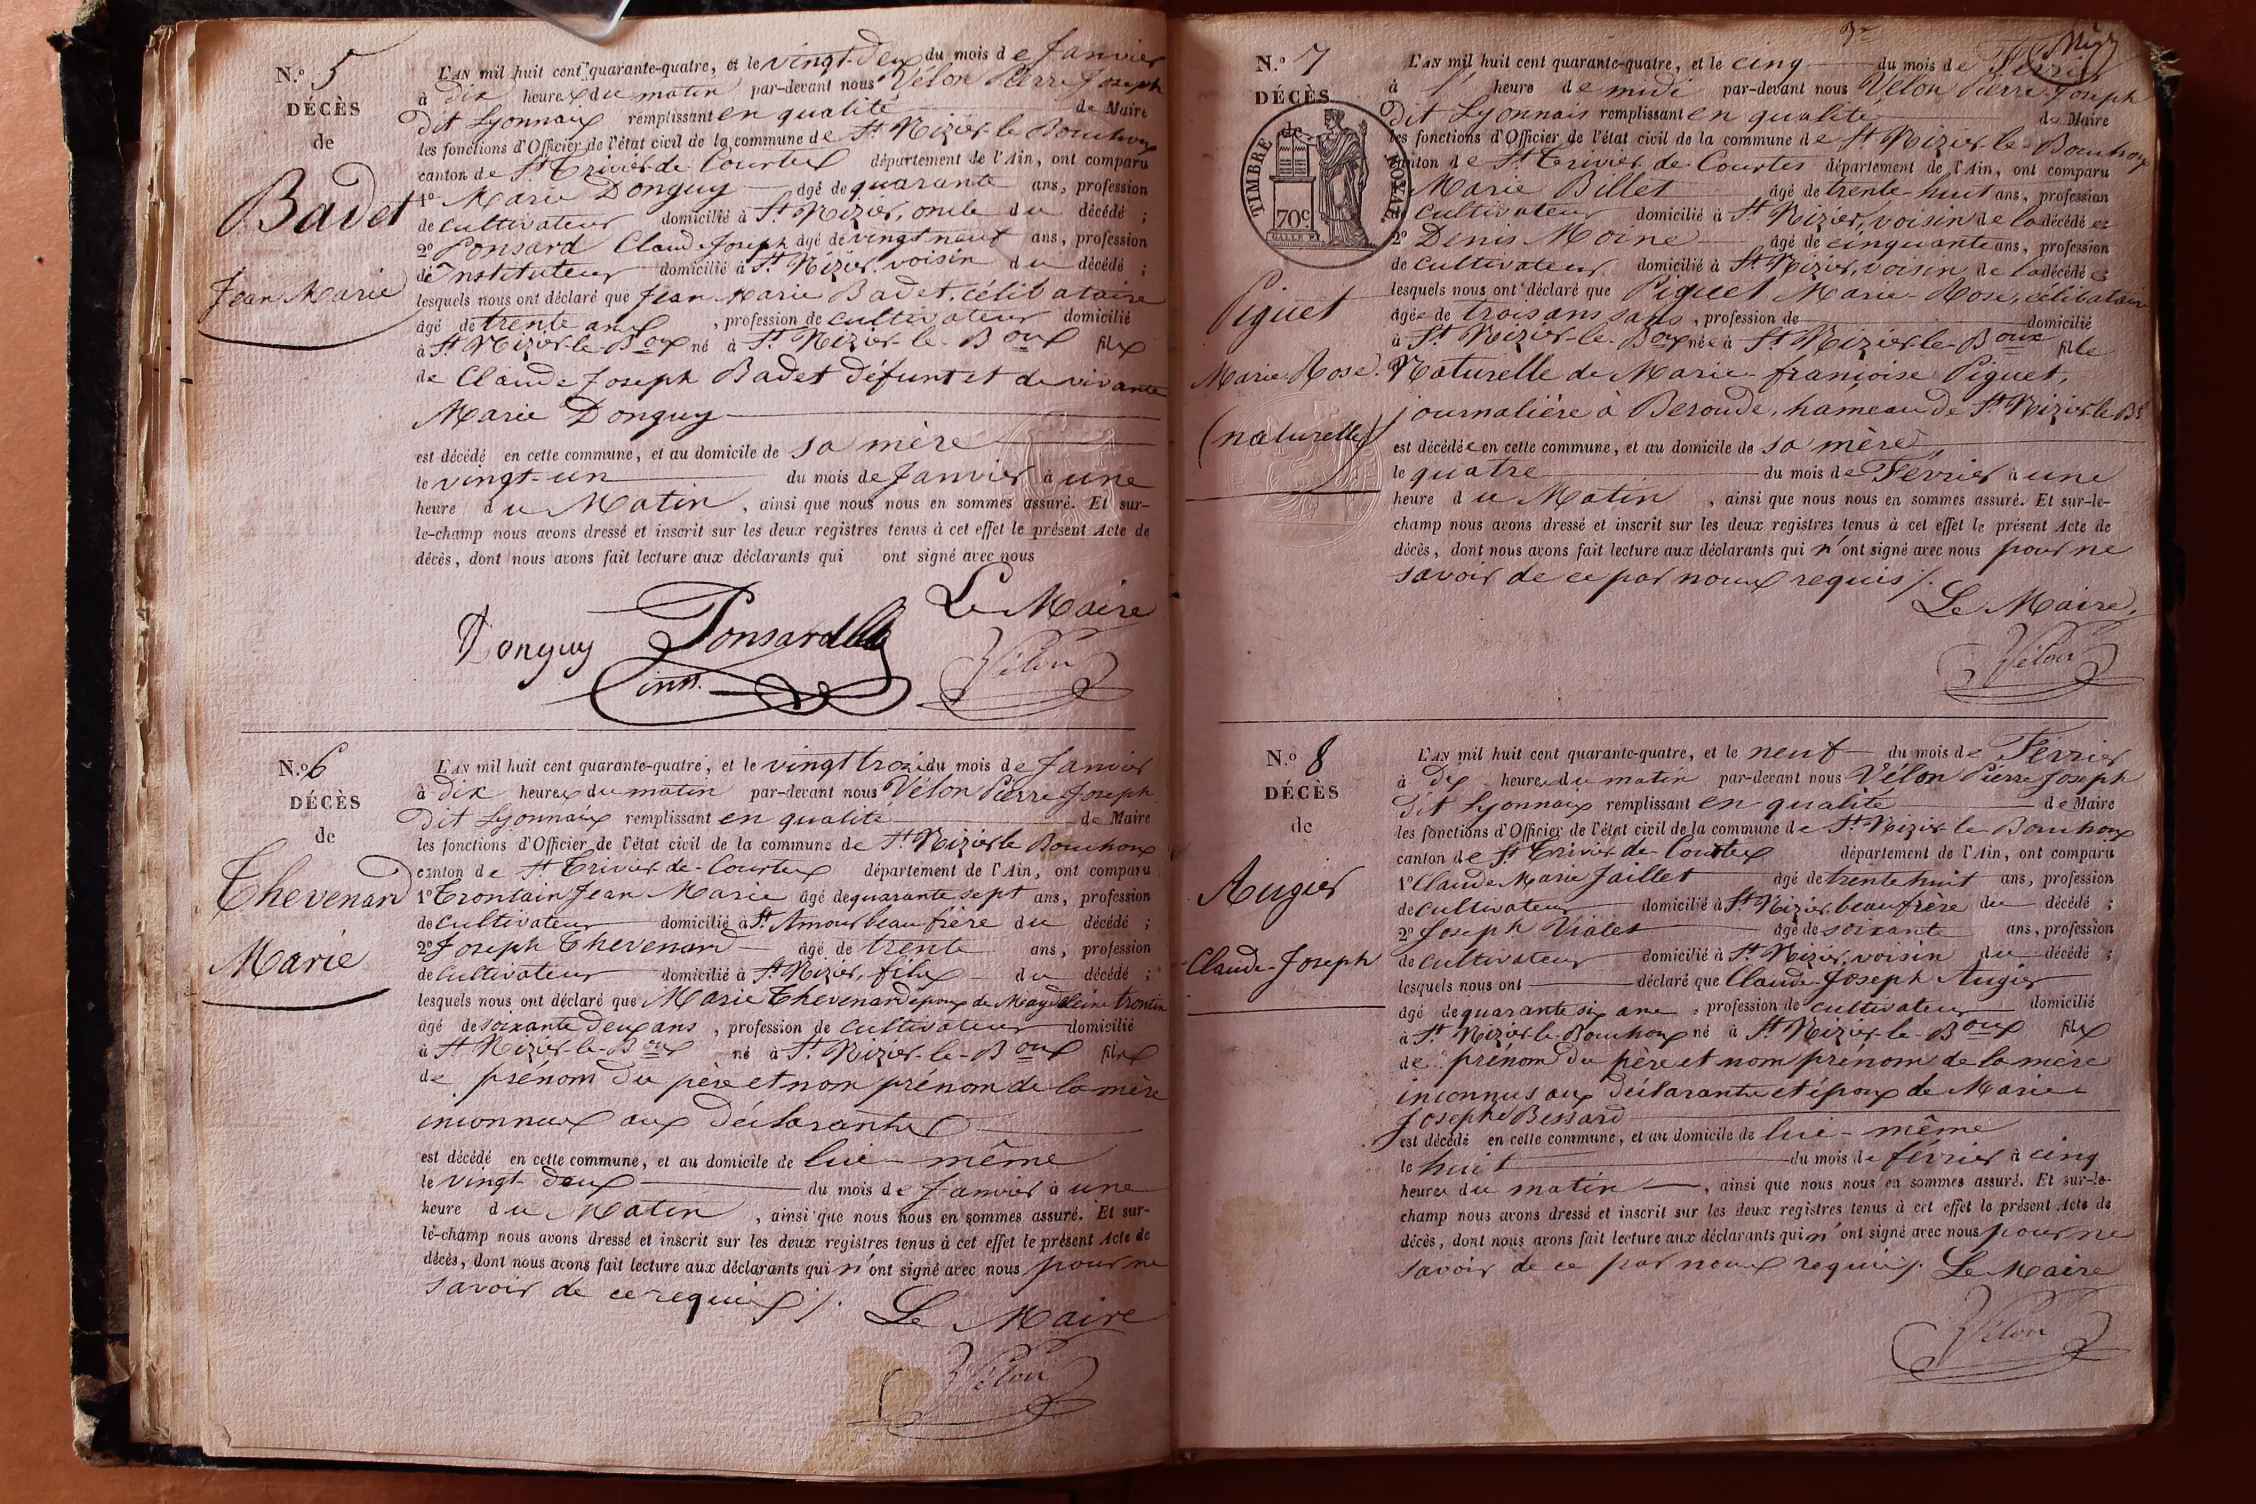 N.º 5
DÉCÈS
de
Badet
Jean Marie
L'AN mil huit cent quarante-quatre, et le vingt-deux du mois de Janvier
à dix heures du matin par-devant nous Vélon Pierre Joseph
dit Lyonnais remplissant en qualité de Maire
les fonctions d'Officier de l'état civil de la commune de St Nizier-le Bouchoux
canton de St Trivier-de-Courtes département de l'Ain, ont comparu
1º Marie Donguy âgé de quarante ans, profession
de cultivateur domicilié à St Nizier, oncle du décédé ;
2º Ponsard Claude Joseph âgé de vingt neuf ans, profession
de Instituteur domicilié à St Nizier voisin du décédé ;
lesquels nous ont déclaré que Jean Marie Badet, célibataire
âgé de trente ans, profession de cultivateur domicilié
à St Nizier-le-Boux né à St Nizier-le-Boux fils
de Claude Joseph Badet défunt et de vivante
Marie Donguy
est décédé en cette commune, et au domicile de sa mère
le vingt-un du mois de Janvier à une
heure du Matin, ainsi que nous nous en sommes assuré. Et sur-
le-champ nous avons dressé et inscrit sur les deux registres tenus à cet effet le présent Acte de
décès, dont nous avons fait lecture aux déclarants qui ont signé avec nous
Le Maire
Donguy Ponsard
instr. Vélon
N.º 6
DÉCÈS
de
Thevenard
Marie
L'AN mil huit cent quarante-quatre, et le vingt trois du mois de Janvier
à dix heures du matin par-devant nous Vélon Pierre Joseph
dit Lyonnais remplissant en qualité de Maire
les fonctions d'Officier de l'état civil de la commune de St Nizier le Bouchoux
canton de St Trivier-de-Courtes département de l'Ain, ont comparu
1º Trontain Jean Marie âgé de quarante sept ans, profession
de cultivateur domicilié à St Amour beau frère du décédé ;
2º Joseph Thevenard âgé de trente ans, profession
de cultivateur domicilié à St Nizier, fils du décédé ;
lesquels nous ont déclaré que Marie Thevenard époux de Magdeleine
âgé de soixante deux ans, profession de cultivateur domicilié
à St Nizier-le-Boux né à St Nizier-le-Boux fils
de prénom du père et nom prénom de la mère
inconnus aux déclarants
est décédé en cette commune, et au domicile de lui-même
le vingt-deux du mois de Janvier à une
heure du Matin, ainsi que nous nous en sommes assuré. Et sur-
le-champ nous avons dressé et inscrit sur les deux registres tenus à cet effet le présent Acte de
décès, dont nous avons fait lecture aux déclarants qui n'ont signé avec nous pour ne
savoir de ce requis ./.
Le Maire
Vélon
N.º 7
DÉCÈS
de
TIMBRE ROYAL
70c
Piguet
Marie Rose.
(naturelle)
L'AN mil huit cent quarante-quatre, et le cinq du mois de Février
à 1 heure de midi par-devant nous Vélon Pierre-Joseph
dit Lyonnais remplissant en qualité de Maire
les fonctions d'Officier de l'état civil de la commune de St Nizier-le-Bouchoux
canton de St Trivier-de-Courtes département de l'Ain, ont comparu
Marie Billet âgé de trente-huit ans, profession
de cultivateur domicilié à St Nizier, voisin de la décédée
2º Denis Moine âgé de cinquante ans, profession
de cultivateur domicilié à St Nizier, voisin de la décédée
lesquels nous ont déclaré que Piguet Marie-Rose, célibataire
âgée de trois ans sans, profession de domicilié
à St Nizier-le-Boux née à St Nizier-le-Boux fille
Naturelle de Marie-françoise Piguet,
journalière à Beroude, hameau de St Nizier-le-Bx
est décédée en cette commune, et au domicile de sa mère
le quatre du mois de Février à une
heure du Matin, ainsi que nous nous en sommes assuré. Et sur-le-
champ nous avons dressé et inscrit sur les deux registres tenus à cet effet le présent Acte de
décès, dont nous avons fait lecture aux déclarants qui n'ont signé avec nous pour ne
savoir de ce par nous requis ./.
Le Maire,
Vélon
N.º 8
DÉCÈS
de
Augier
Claude-Joseph
L'AN mil huit cent quarante-quatre, et le neuf du mois de Février
à dix heures du matin par-devant nous Vélon Pierre Joseph
dit Lyonnais remplissant en qualité de Maire
les fonctions d'Officier de l'état civil de la commune de St Nizier-le Bouchoux
canton de St Trivier-de-Courtes département de l'Ain, ont comparu
1º Claude Marie Jaillet âgé de trente huit ans, profession
de cultivateur domicilié à St Nizier beau frère du décédé ;
2º Joseph Vialet âgé de soixante ans, profession
de cultivateur domicilié à St Nizier, voisin du décédé ;
lesquels nous ont déclaré que Claude-Joseph Augier
âgé de quarante six ans, profession de cultivateur domicilié
à St Nizier-le-Bouchoux né à St Nizier-le-Boux fils
de prénom du père et nom prénom de la mère
inconnus aux déclarants et époux de Marie
Josephe Bessard
est décédé en cette commune, et au domicile de lui-même
le huit du mois de février à cinq
heures du matin, ainsi que nous nous en sommes assuré. Et sur-le-
champ nous avons dressé et inscrit sur les deux registres tenus à cet effet le présent Acte de
décès, dont nous avons fait lecture aux déclarants qui n'ont signé avec nous pour ne
savoir de ce par nous requis ./. Le Maire
Vélon